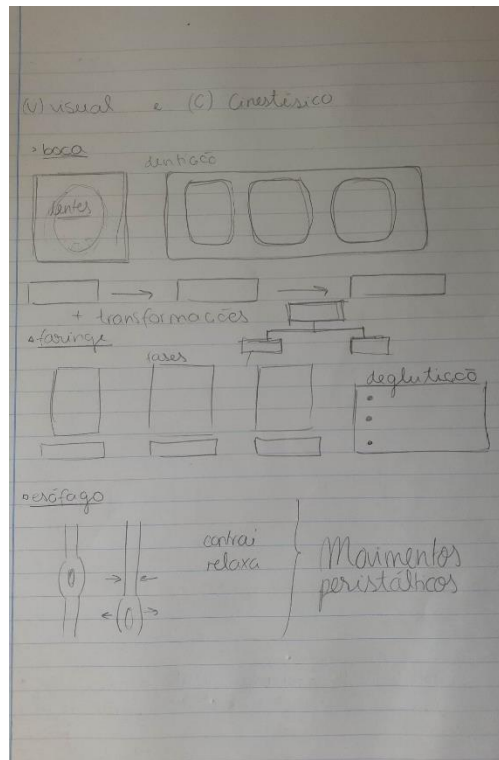 (V) visual e (C) Cinestésico
boca
dentição
dentes
+ transformações
faringe
fases
deglutição
esófago
contrai
relaxa
Movimentos
peristálticos